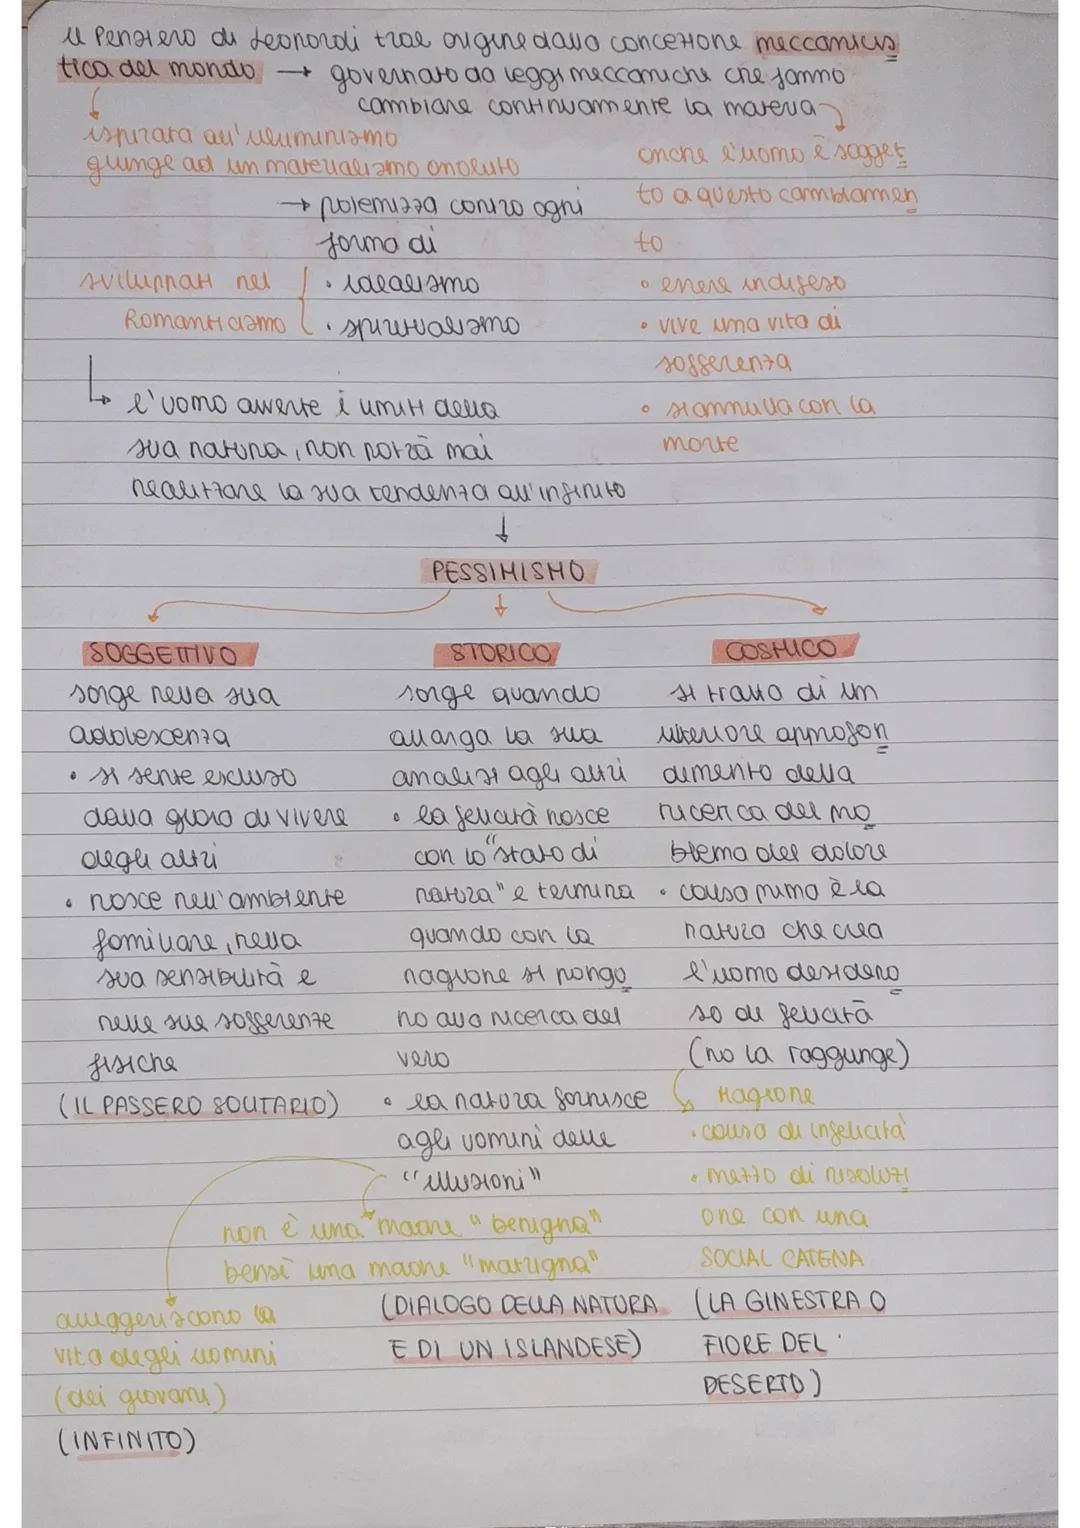 Il pensiero di Leopardi trae origine dalla concezione meccanicis
tica del mondo → governato da leggi meccaniche che fanno
cambiare continuamente la materia
ispirata all'illuminismo
giunge ad un materialismo assoluto
anche l'uomo è sogget
to a questo cambiamen
to
→ polemizza contro ogni
forma di
sviluppati nel
Romanticismo
• idealismo
• spiritualismo
• essere indifeso
• vive una vita di
sofferenza
• si annulla con la
morte
l'uomo avverte i limiti della
sua natura, non potrà mai
realizzare la sua tendenza all'infinito
PESSIMISMO
SOGGETTIVO
sorge nella sua
adolescenza
• si sente escluso
dalla gioia di vivere
degli altri
• nasce nell'ambiente
familiare, nella
sua sensibilità e
nelle sue sofferenze
fisiche
(IL PASSERO SOLITARIO)
STORICO
sorge quando
allarga la sua
analisi agli altri
• la felicità nasce
con lo "stato di
natura" e termina
quando con la
ragione si pongo
no alla ricerca del
vero
• la natura fornisce
agli uomini delle
"illusioni"
non è una madre "benigna"
bensì una madre "matrigna"
(DIALOGO DELLA NATURA
E DI UN ISLANDESE)
alleggeriscono la
vita degli uomini
(dei giovani)
(INFINITO)
COSMICO
si tratta di un
ulteriore approfon
dimento della
ricerca del pro
blema del dolore
• causa prima è la
natura che crea
l'uomo desidero
so di felicità
(no la raggiunge)
ragione
• causa di infelicità
• mezzo di risoluzi
one con una
SOCIAL CATENA
(LA GINESTRA O
FIORE DEL
DESERTO)